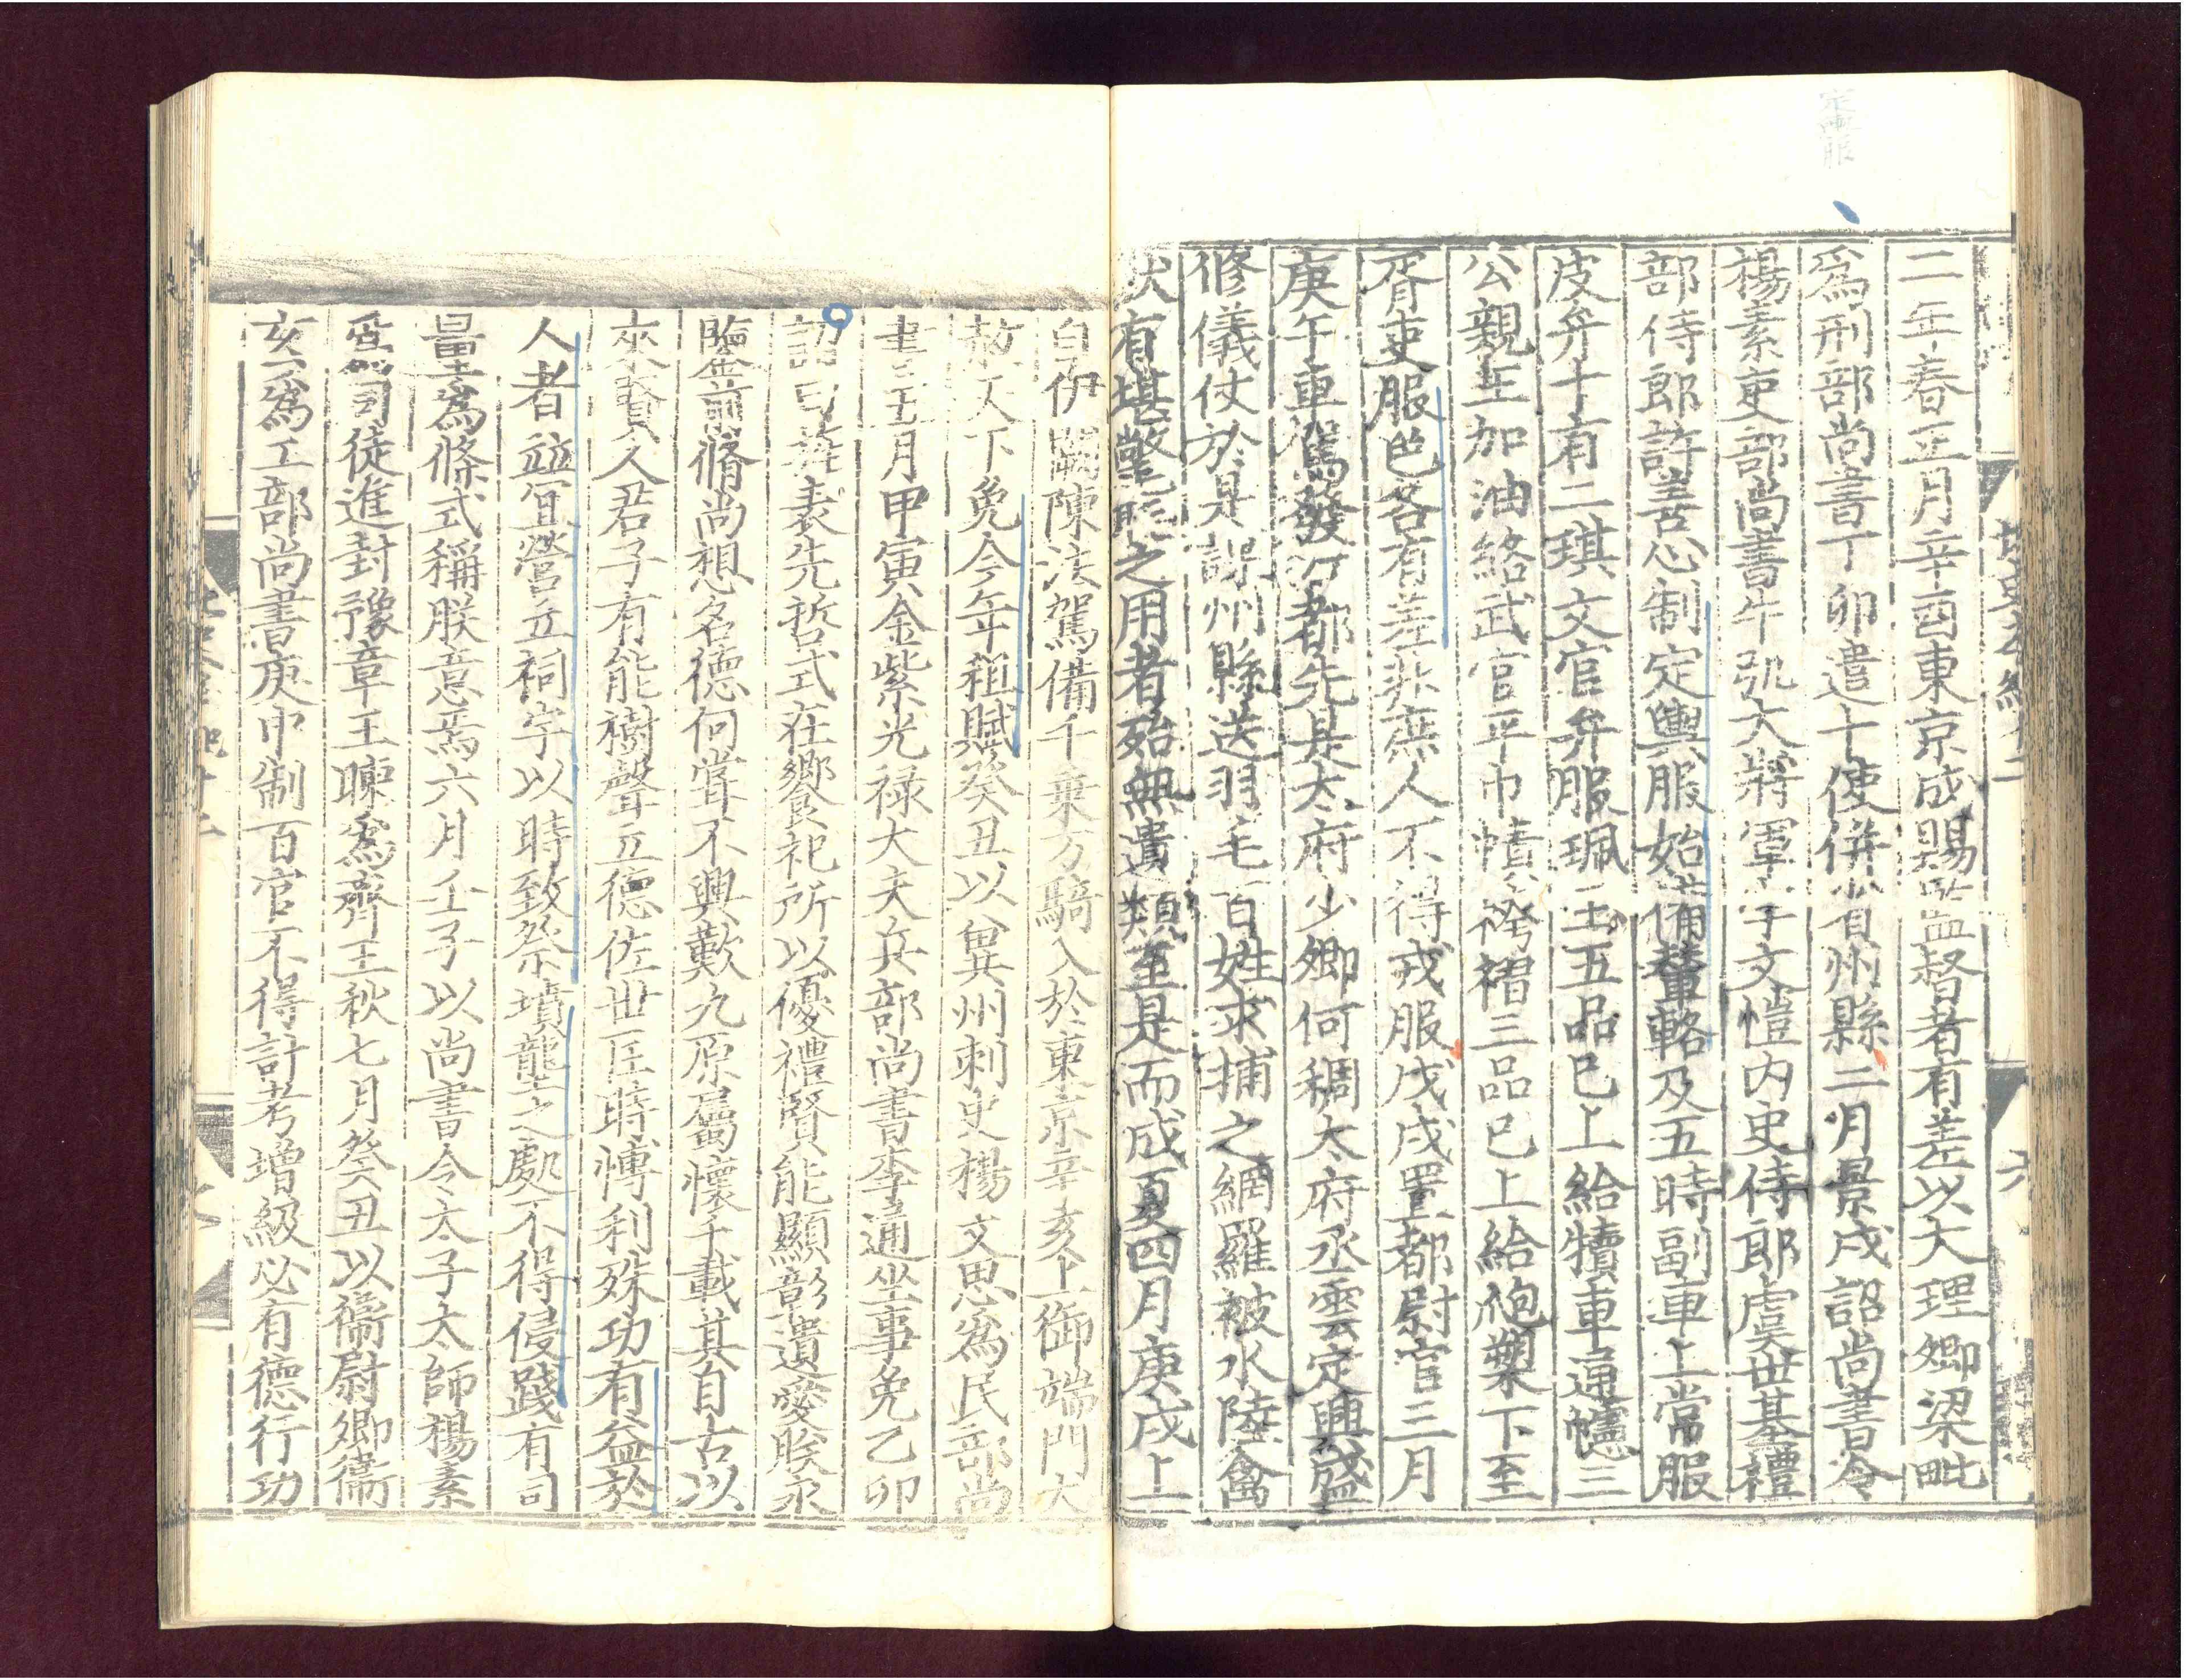 定輿服
二年春正月辛酉東京成賜監督者有差以大理卿梁毗
爲刑部尚書丁卯遣十使併省州縣二月景戌詔尚書令
楊素吏部尚書牛弘大將軍宇文愷內史侍郎虞世基禮
部侍郎許善心制定輿服始備輦輅及五時副車上常服
皮弁十有二琪文官弁服珮玉五品已上給犢車通幰三
公親王加油絡武官平巾幘袴褶三品已上給㼎槊下至
胥吏服色各有差非庶人不得戎服戊戌置都尉官三月
庚午車駕發江都先是太府少卿何稠太府丞雲定興盛
修儀仗於是課州縣送羽毛百姓求捕之網羅被水陸禽
獸有堪氅毦之用者殆無遺類至是而成夏四月庚戌上
自伊闕陳法駕備千乗万騎入於東京辛亥上御端門大
赦天下免今年租賦癸丑以兾州刺史楊文思爲民部尚
書五月甲寅金紫光禄大夫兵部尚書李通坐事免乙卯
詔曰旌表先哲式在饗祀所以優禮賢能顯彰遺愛朕永
鑒前脩尚想名德何甞不興歎九原屬懷千載其自古以
來賢人君子有能樹聲立德佐世匡時博利殊功有益於
人者並冝營立祠宇以時致祭墳壟之處不得侵踐有司
量爲條式稱朕意焉六月壬子以尚書令太子太師楊素
爲司徒進封豫章王暕爲齊王秋七月癸丑以衛尉卿衛
玄爲工部尚書庚申制百官不得計考增級必有德行功